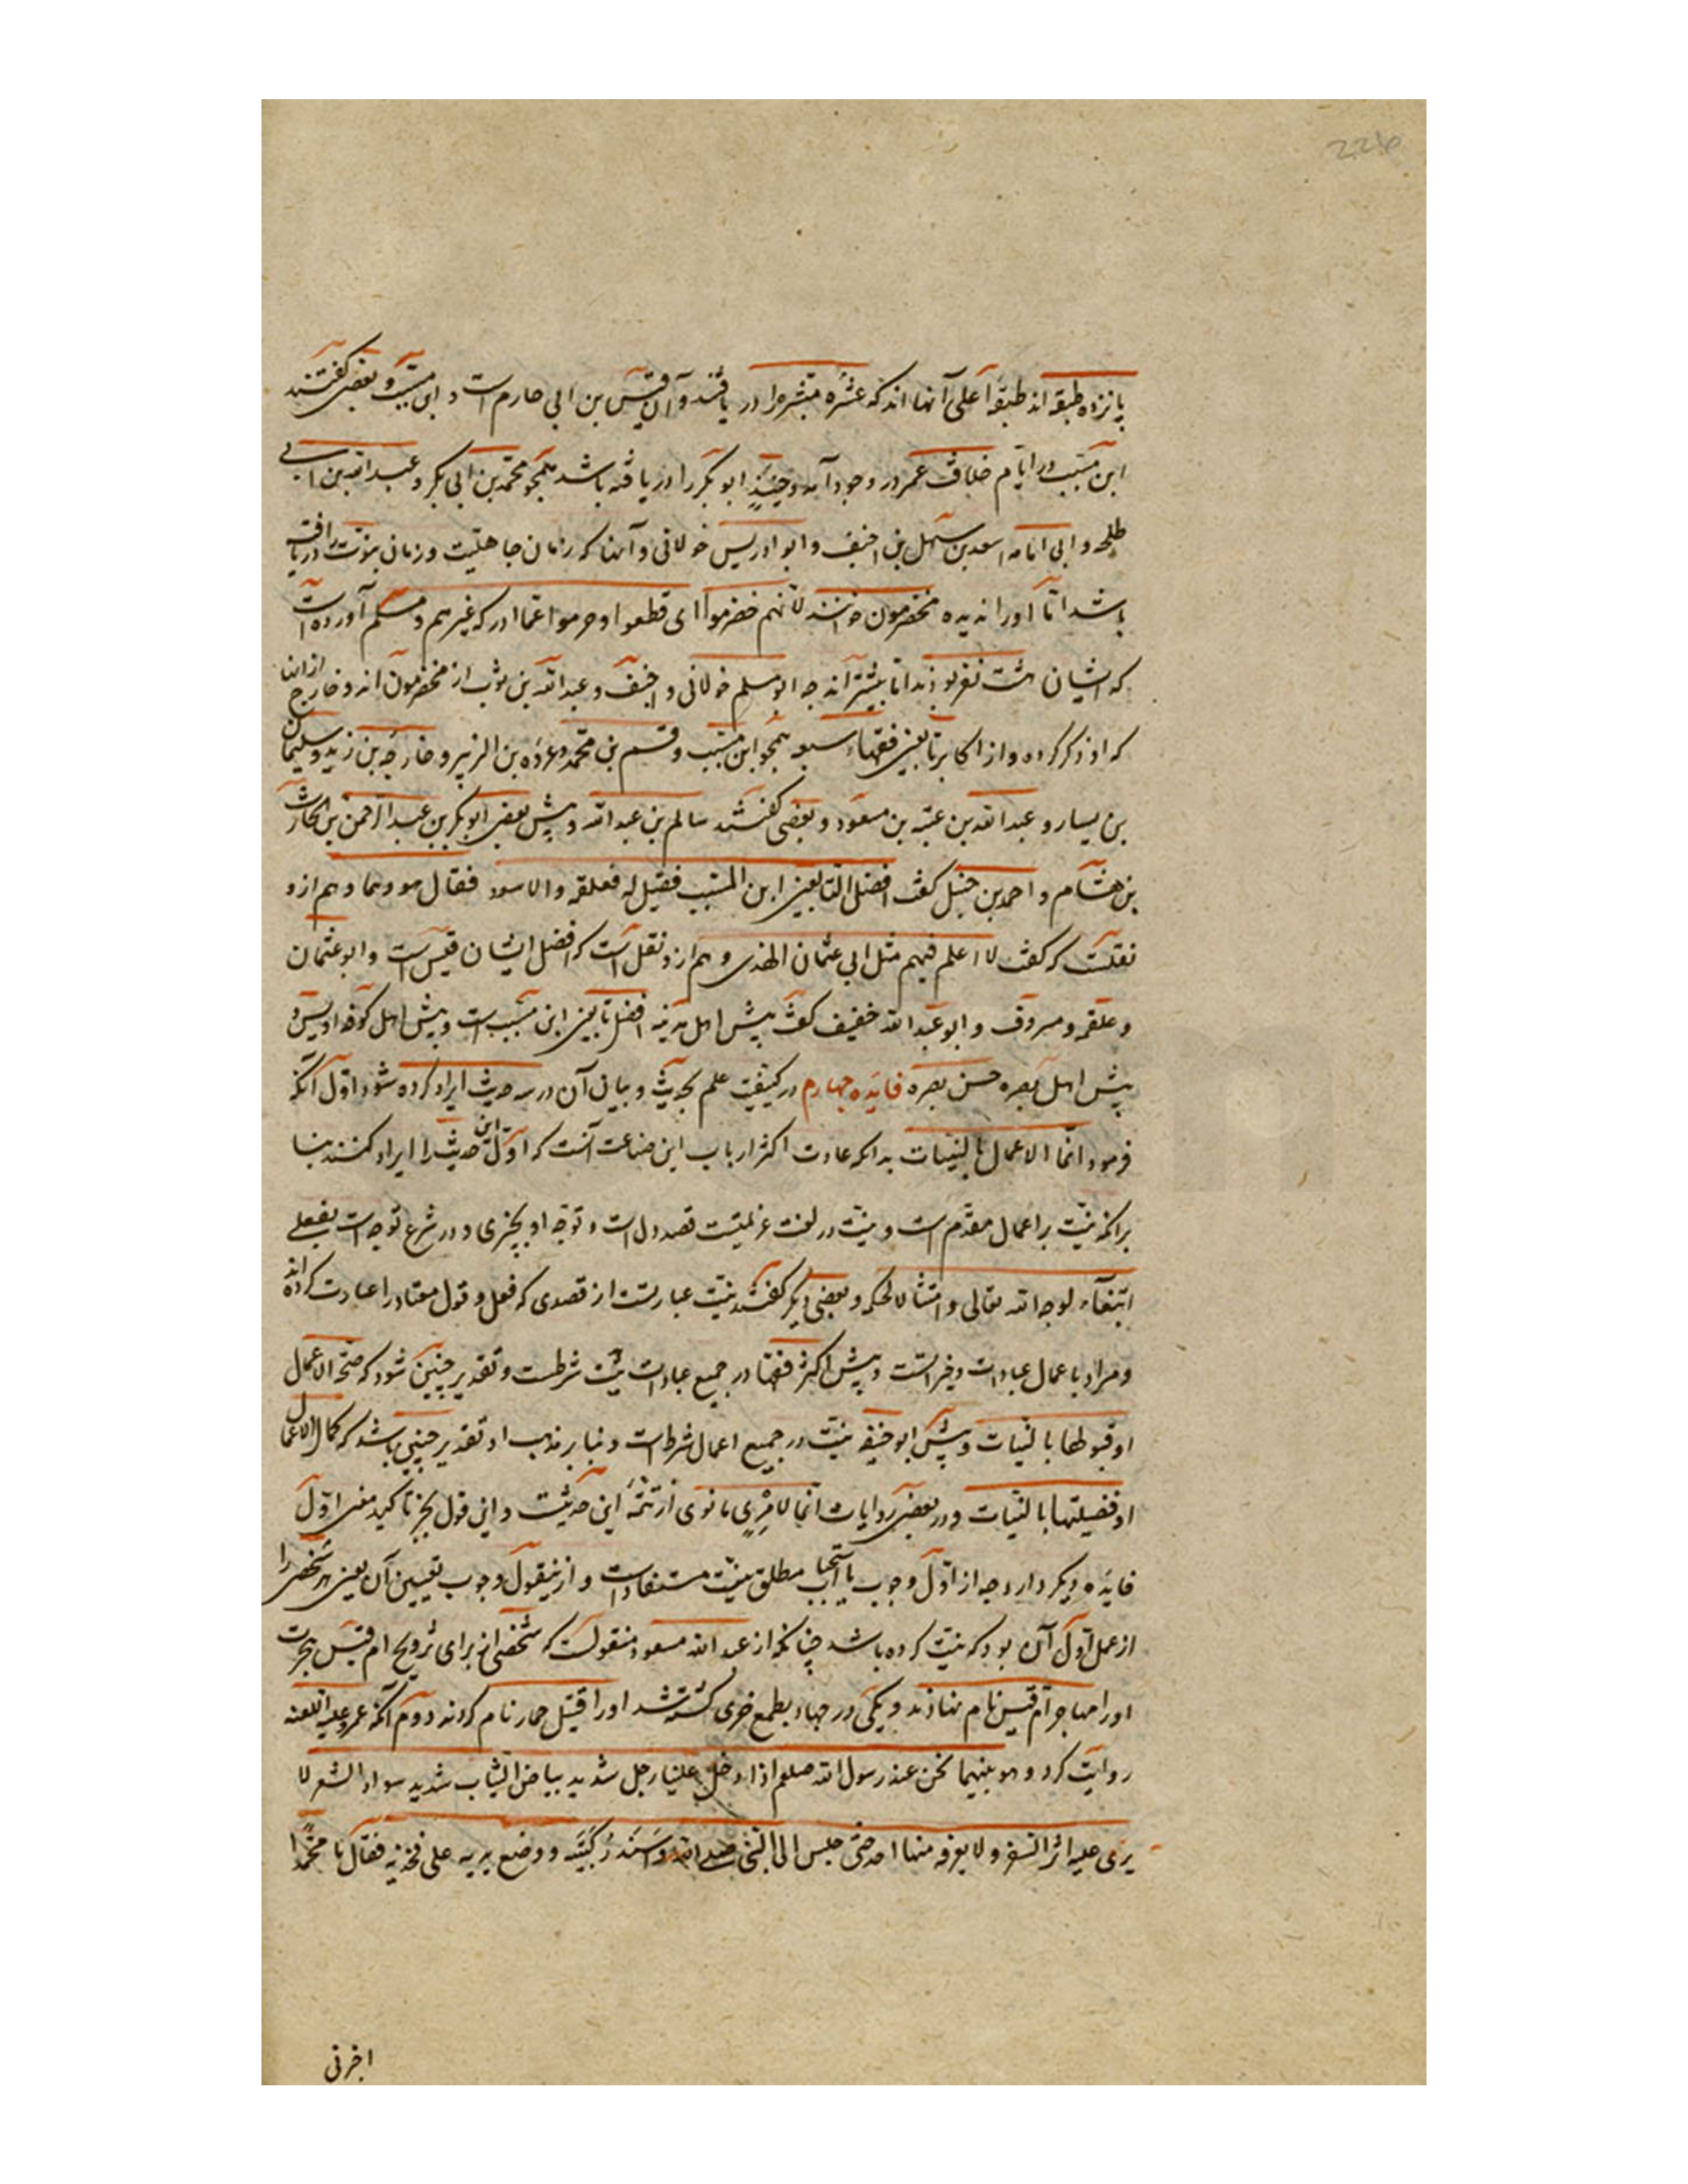 226
پانزده طبقه اند طبقهٔ اعلی آنها اند که عشرهٔ مبشره را در یافتند و آن قیس بن ابی حازم است و ابن مسیب و بعضی گفتند
ابن مسیب در ایام خلافت عمر در وجود آمد و حینئذٍ ابوبکر را در یافته باشد همچو محمد بن ابی بکر و عبد الله بن ابی
طلحه و ابی امامه اسعد بن سهل بن احنیف و ابو ادریس خولانی و آنها که زمان جاهلیت و زمان نبوت را دریافته
باشد اما او را ندیده مخضرمون خوانند لانهم خضرموا ای قطعوا و حرموا عما ادرکه غیرهم و مسلم آورده است
که ایشان بیست نفر بودند اما بیشتراند چه ابو مسلم خولانی و احنف و عبد الله بن ثوب از مخضرمون اند و خارج از اینها
که او ذکر کرده و از اکابر تابعین فقهاء سبعه همچو ابن مسیب و قسم بن محمد و عروه بن الزبیر و خارجه بن زید و سلیمان
بن یسار و عبد الله بن عتبه بن مسعود و بعضی گفتند سالم بن عبد الله و پیش بعضی ابوبکر بن عبد الرحمن بن الحارث
بن هشام و احمد بن حنبل گفت افضل التابعین ابن المسیب فقیل له فعلقمه والاسود فقال هو و هما و هم ازو
نقلست که گفت لا اعلم فیهم مثل ابی عثمان الهندی و هم ازو نقل است که افضل ایشان قیس است و ابو عثمان
و علقمه و مسروق و ابو عبد الله خفیف گفت پیش اهل مدینه افضل تابعین ابن مسیب است و پیش اهل کوفه اویس و
پیش اهل بصره حسن بصره فایده چهارم در کیفیت علم بحدیث و بیان آن در سه حدیث ایراد کرده شود اول آنکه
فرمود انما الاعمال بالنیات بدانکه عادت اکثر ارباب این صناعت آنست که اول این حدیث را ایراد کنند بنا
برانکه نیت بر اعمال مقدم است و نیت در لغت عزیمتیست قصد دل است و توجه او بچیزی و در شرع توجه است بفعلی
ابتغاء لوجه الله تعالی و امتثالا لحکمه و بعضی دیگر گفتند نیت عبارتست از قصدی که فعل و قول معتاد را عبادت کرداند
و مراد باعمال عبادات و خیراتست و پیش اکثر فقها در جمیع عبادات نیت شرطست و تقدیر چنین شود که صحة الاعمال
او قبولها بالنیات و پیش ابو حنیفه نیت در جمیع اعمال شرط است و بنا بر مذهب او تقدیر چنین باشد که کمال الاعمال
او فضیلتها بالنیات و در بعضی روایات انما لامرئٍ ما نوی از تتمهٔ این حدیثست و این قول بجز تاکید معنی اول
فایده دیگر دارد چه از اول وجوب یا استحباب مطلق نیت مستفاد است و ازین قول وجوب تعیین آن یعنی هر شخصی را
از عمل اول آن بود که نیت کرده باشد چنانکه از عبد الله مسعود منقولست که شخصی از برای تزویج ام قیس هجرت
او را مهاجر ام قیس نام نهادند و یکی در جهاد بطمع خری کشته شد او را قتیل حمار نام کردند دوم آنکه عمر
روایت کرد و هو بینما نحن عند رسول الله صلعم اذا دخل علینا رجل شدید بیاض الثیاب شدید سواد الشعر لا
یرٰی علیه اثر السفر و لا یعرفه منها احد حتی جلس الی النبی صلی الله و اسند رکبتیه و وضع یدیه علی فخذیه فقال یا محمد
اخرنی